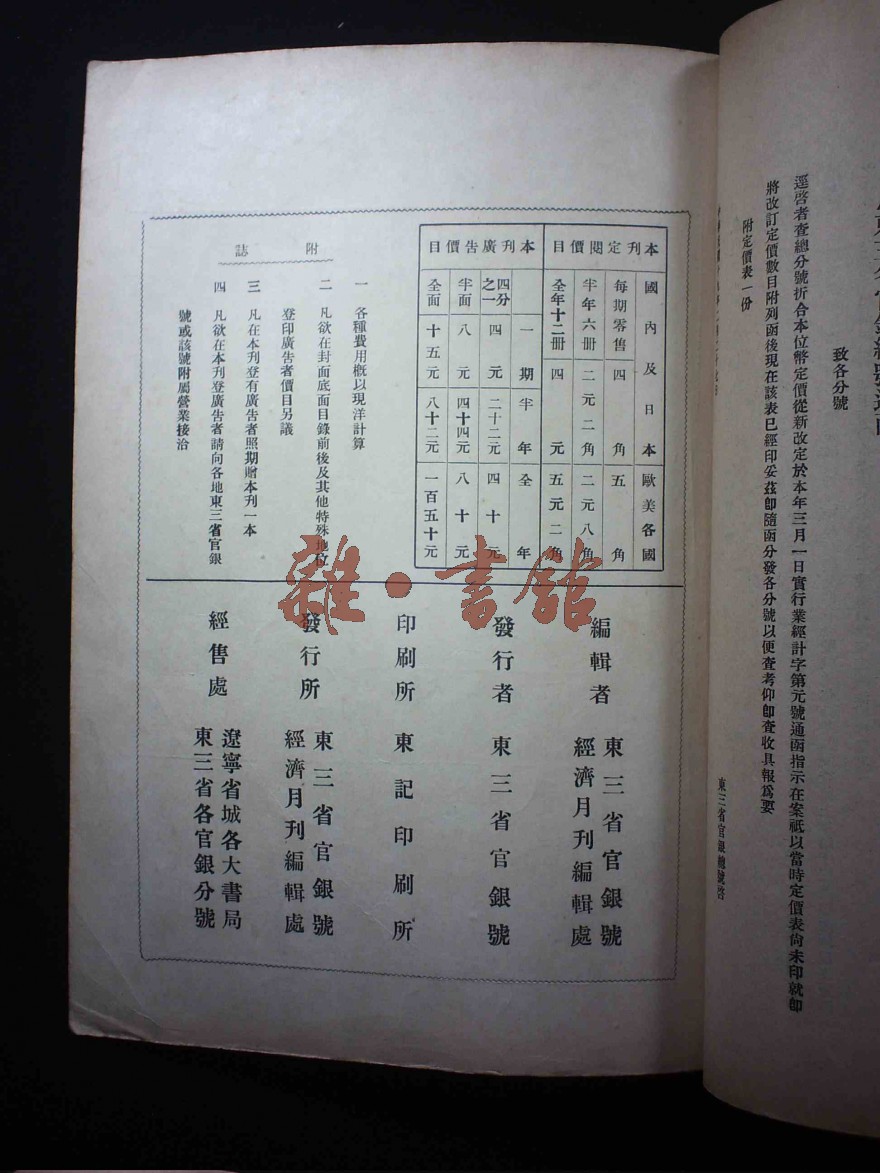 致各分號
逕啓者查總分號折合本位幣定價從新改定於本年三月一日實行業經計字第元號通函指示在案祇以當時定價表尙未印就卽
將改訂定價數目附列函後現在該表已經印妥茲卽隨函分發各分號以便查考仰卽查收具報爲要
附定價表一份
東三省官銀總號啓
本刊定閱價目
國內及日本 歐美各國
每期零售 四角 五角
半年六册 二元二角 二元八角
全年十二册 四元 五元二角
本刊廣告價目
一期 半年 全年
四分之一 四元 二十二元 四十元
半面 八元 四十四元 八十元
全面 十五元 八十二元 一百五十元
附誌
一 各種費用概以現洋計算
二 凡欲在封面底面目錄前後及其他特殊地位
登印廣告者價目另議
三 凡在本刊登有廣告者照期贈本刊一本
四 凡欲在本刊登廣告者請向各地東三省官銀
號或該號附屬營業接洽
編輯者 東三省官銀號
經濟月刊編輯處
發行者 東三省官銀號
印刷所 東記印刷所
發行所 東三省官銀號
經濟月刊編輯處
經售處 遼寧省城各大書局
東三省各官銀分號
雜·書館